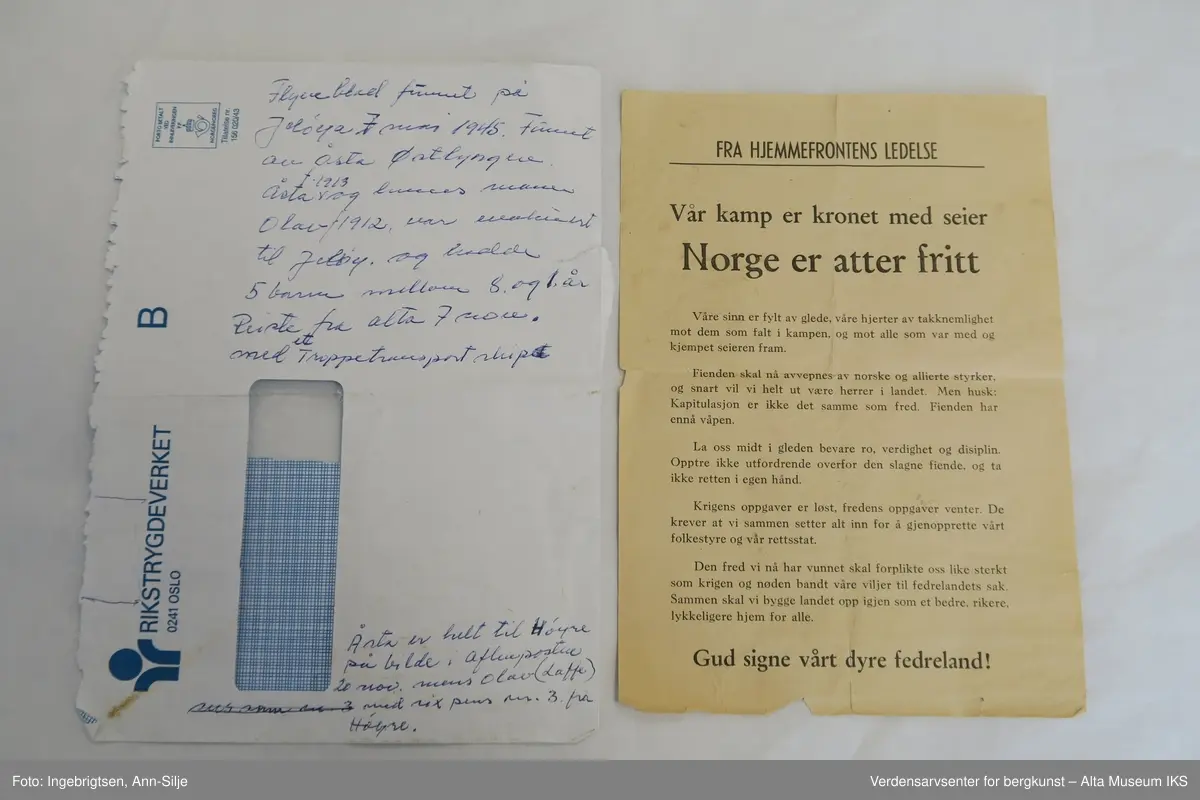 PORTO BETALT
VED
INNLEVERINGEN
P.P.
NORGE/NOREG
Tillatelse nr.
159 020/43
Flyveblad funnet på
Jeløya 7 mai 1945. Funnet
av Åsta Østlyngen.
f 1913
Åsta og hennes mann
Olav f 1912, var evakuert
til Jeløy. og hadde
5 barn mellom 8. og 1. år
Reiste fra Alta 7 nov.
et
med Troppetransport skip
B
RIKSTRYGDEVERKET
0241 OSLO
Åsta er helt til Høyre
på bilde i Aftenposten
20 nov. mens Olav (Laffe)
med six pens nr. 3. fra
Høyre.
FRA HJEMMEFRONTENS LEDELSE
Vår kamp er kronet med seier
Norge er atter fritt
Våre sinn er fylt av glede, våre hjerter av takknemlighet
mot dem som falt i kampen, og mot alle som var med og
kjempet seieren fram.
Fienden skal nå avvepnes av norske og allierte styrker,
og snart vil vi helt ut være herrer i landet. Men husk:
Kapitulasjon er ikke det samme som fred. Fienden har
ennå våpen.
La oss midt i gleden bevare ro, verdighet og disiplin.
Opptre ikke utfordrende overfor den slagne fiende, og ta
ikke retten i egen hånd.
Krigens oppgaver er løst, fredens oppgaver venter. De
krever at vi sammen setter alt inn for å gjenopprette vårt
folkestyre og vår rettsstat.
Den fred vi nå har vunnet skal forplikte oss like sterkt
som krigen og nøden bandt våre viljer til fedrelandets sak.
Sammen skal vi bygge landet opp igjen som et bedre, rikere,
lykkeligere hjem for alle.
Gud signe vårt dyre fedreland!
Foto: Ingebrigtsen, Ann-Silje
Verdensarvsenter for bergkunst – Alta Museum IKS